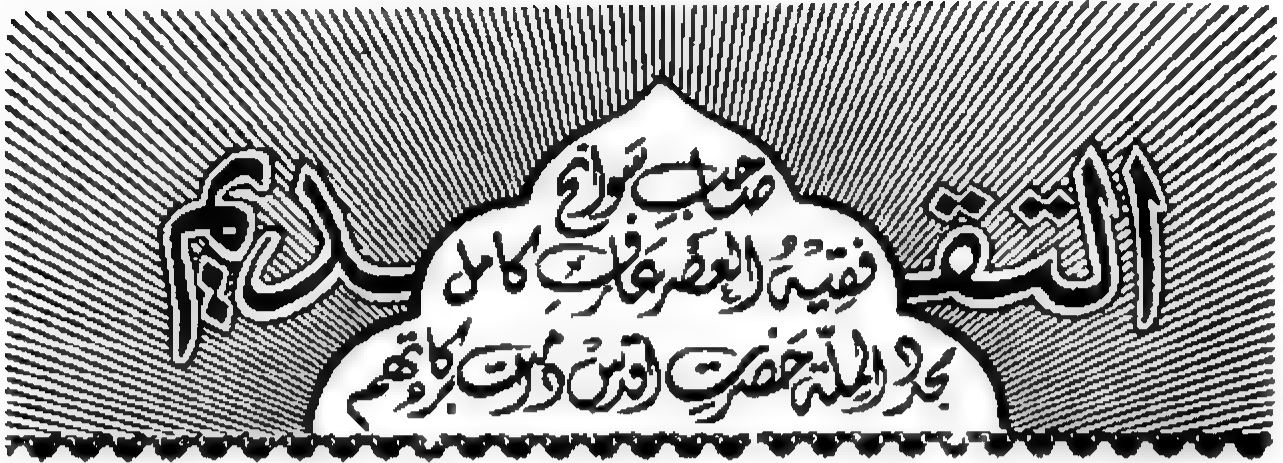 التقديم
صاحب سوانح
فقیہ العصر عارف کامل
مجدد الملّة حضرت اقدس دامت برکاتہم